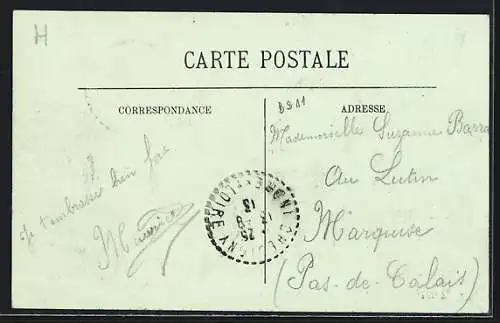 H
CARTE POSTALE
CORRESPONDANCE
ADRESSE
Je t'embrasse bien fort
Maurice
Mademoiselle Suzanne Barra
Au Lutin
Marquise
(Pas-de-Calais)